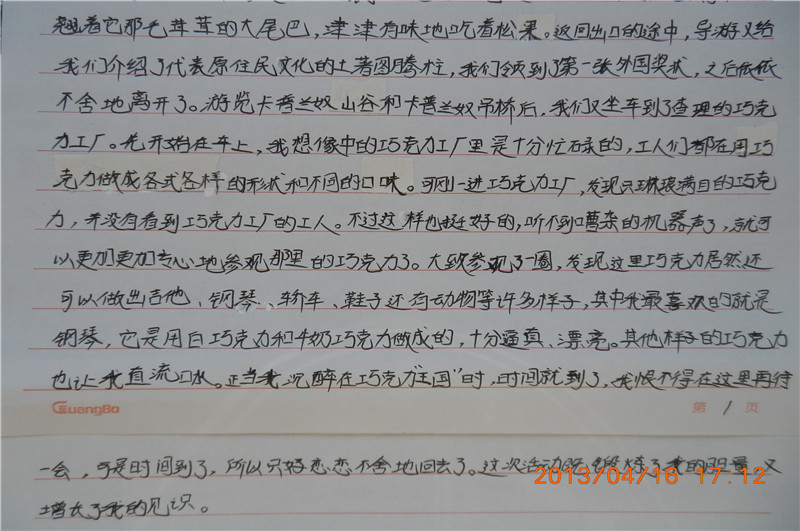 翘着它那毛茸茸的大尾巴，津津有味地吃着松果。返回出口的途中，导游又给
我们介绍了代表原住民文化的土著图腾柱，我们领到了第一张外国奖状，之后依依
不舍地离开了。游览卡普兰奴山谷和卡普兰奴吊桥后，我们又坐车到了查理的巧克
力工厂。先开始在车上，我想像中的巧克力工厂里是十分忙碌的，工人们都在用巧
克力做成各式各样的形状和不同的口味。可刚一进巧克力工厂，发现只琳琅满目的巧克
力，并没有看到巧克力工厂的工人。不过这样也挺好的，听不到嘈杂的机器声了，就可
以更加更加专心地参观那里的巧克力了。大致参观了一圈，发现这里巧克力居然还
可以做出吉他、钢琴、轿车、鞋子还有动物等许多样子，其中我最喜欢的就是
钢琴，它是用白巧克力和牛奶巧克力做成的，十分逼真、漂亮。其他样子的巧克力
也让我直流口水。正当我沉醉在巧克力“王国”时，时间就到了，我恨不得在这里再待
GuangBo 第 1 页
一会，可是时间到了，所以只好恋恋不舍地回去了。这次活动既锻炼了我的胆量，又
2013/04/16 17:12
增长了我的见识。